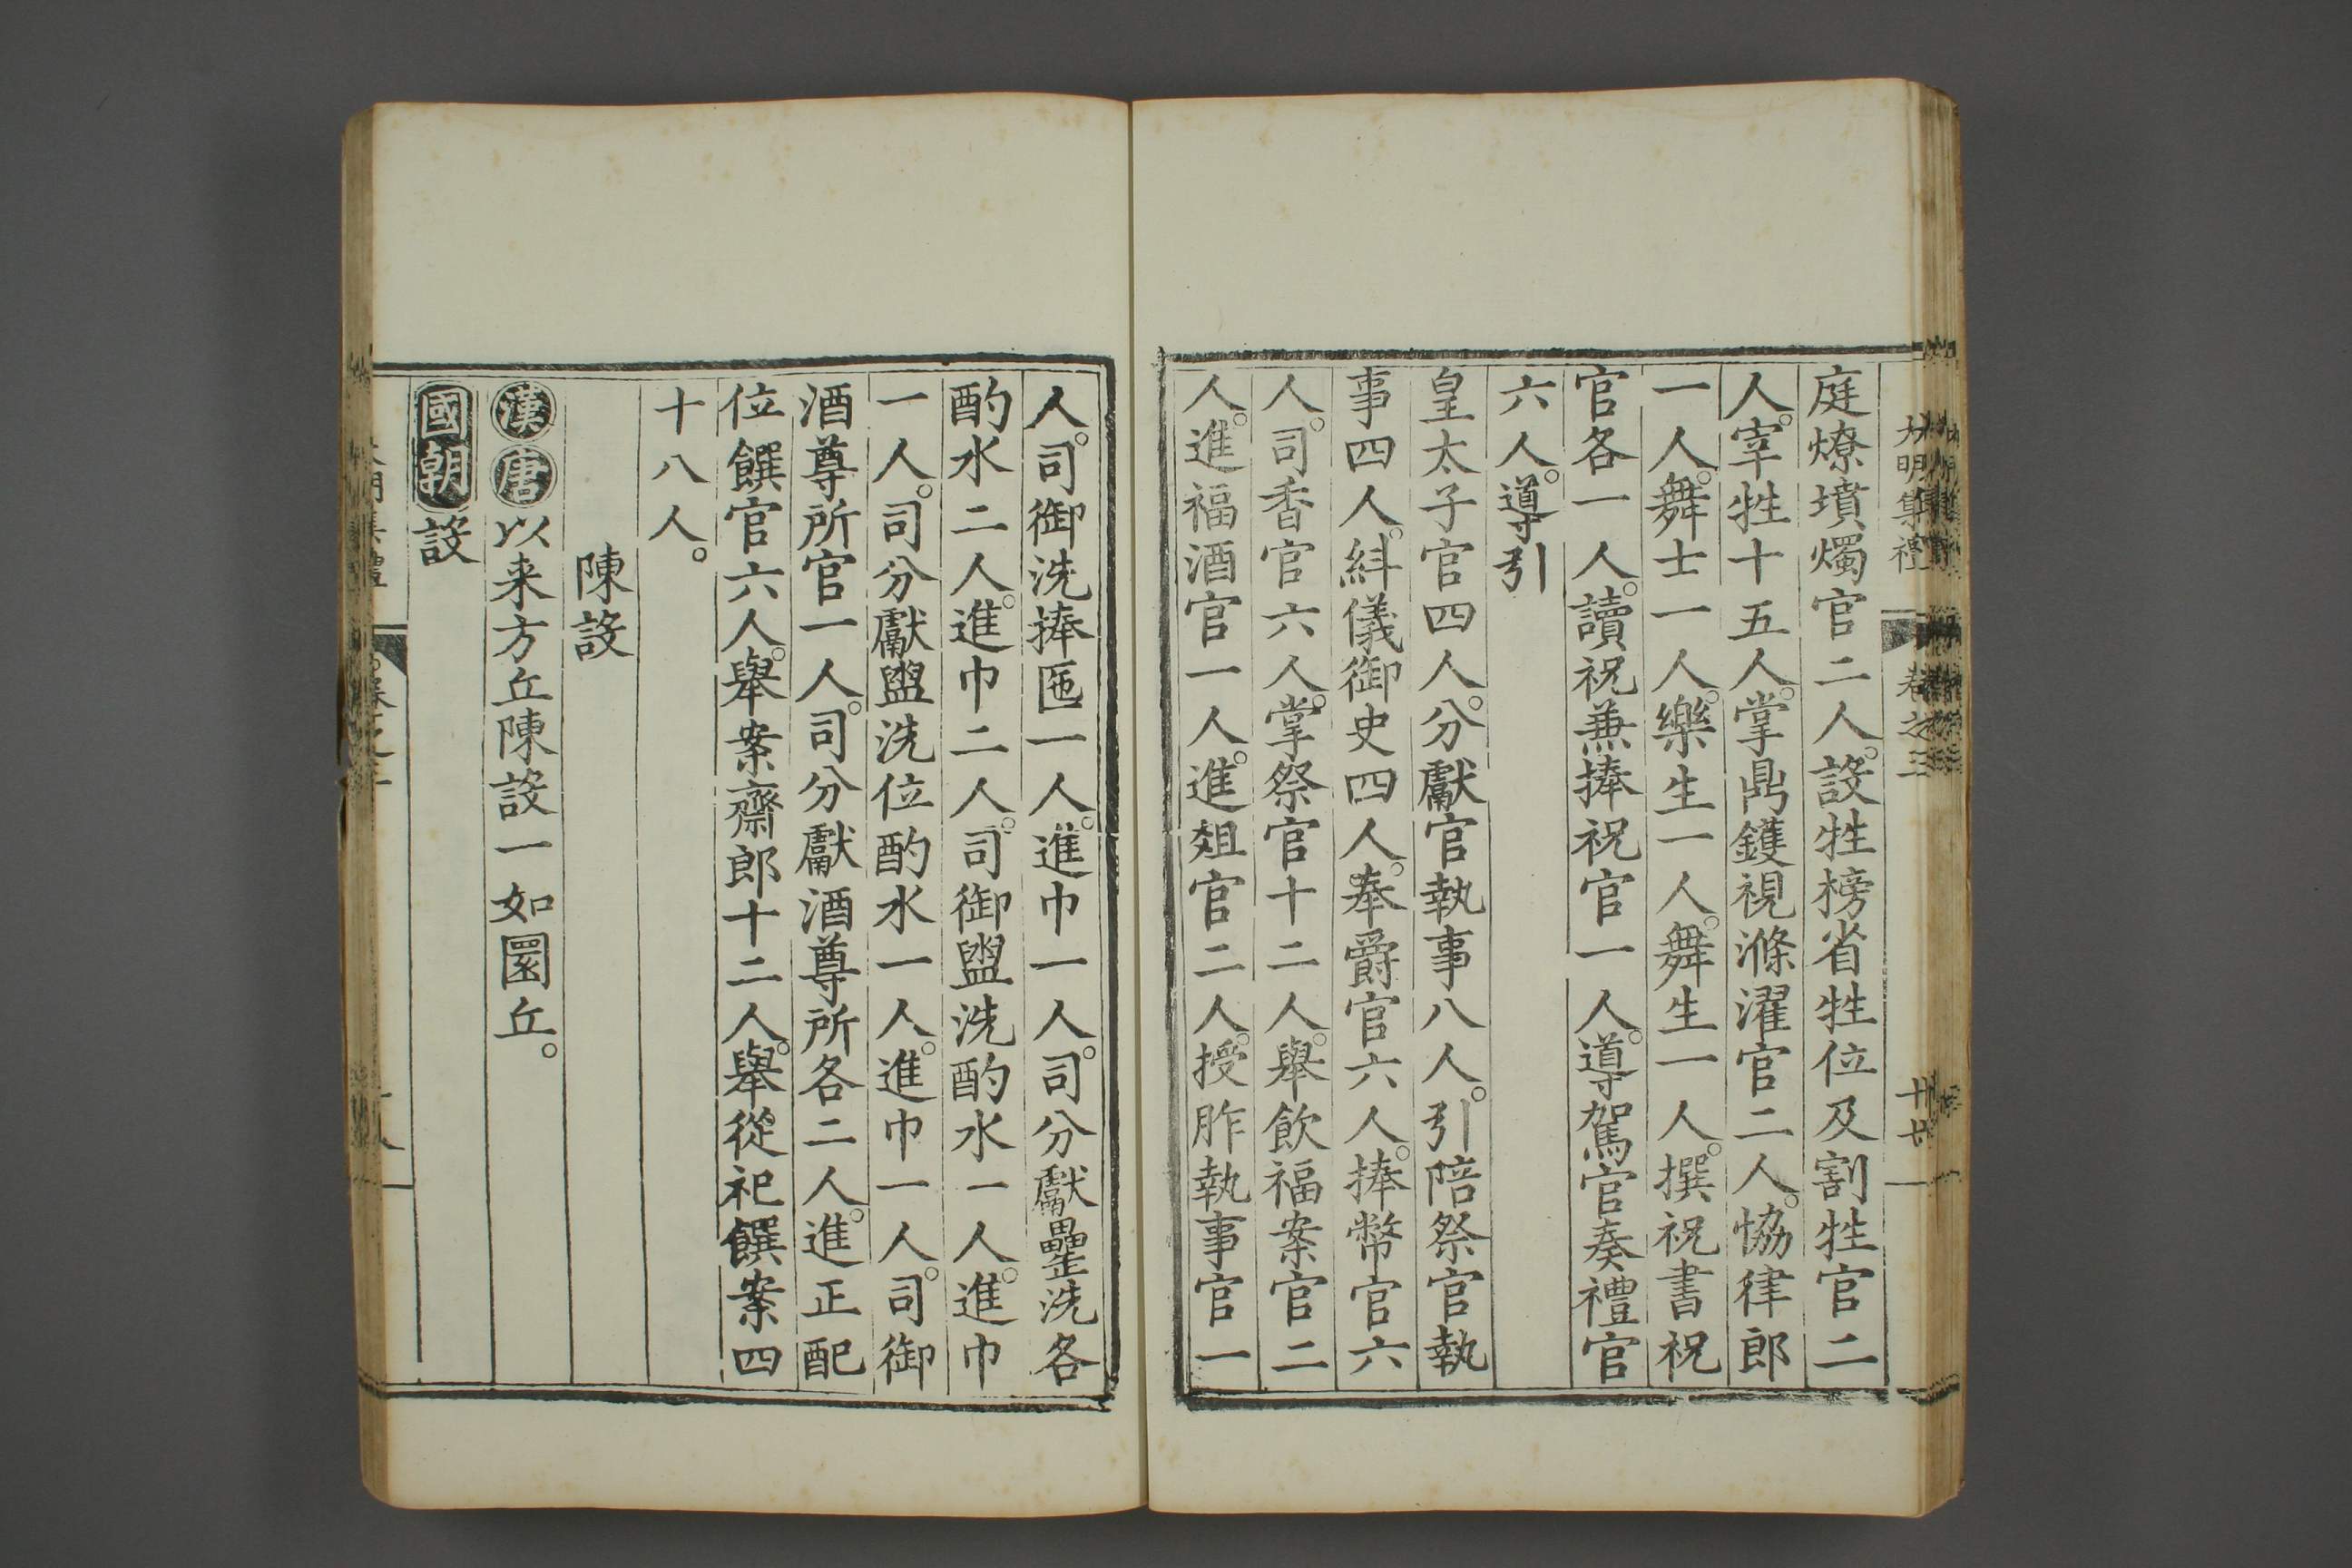 大明集禮
卷之三
十七
庭燎墳燭官二人。設牲榜省牲位及割牲官二
人。宰牲十五人。掌鼎鑊視滌濯官二人。恊律郎
一人。舞士一人。樂生一人。舞生一人。撰祝書祝
官各一人。讀祝兼捧祝官一人。導駕官奏禮官
六人。導引
皇太子官四人。分獻官執事八人。引陪祭官執
事四人。糾儀御史四人。奉爵官六人。捧幣官六
人。司香官六人。掌祭官十二人。舉飲福案官二
人。進福酒官一人。進爼官二人。授胙執事官一
人。司御洗捧匜一人。進巾一人。司分獻罍洗各
酌水二人。進巾二人。司御盥洗酌水一人。進巾
一人。司分獻盥洗位酌水一人。進巾一人。司御
酒尊所官一人。司分獻酒尊所各二人。進正配
位饌官六人。舉案齋郎十二人。舉從祀饌案四
十八人。
陳設
漢唐以来方丘陳設一如圜丘。
國朝設